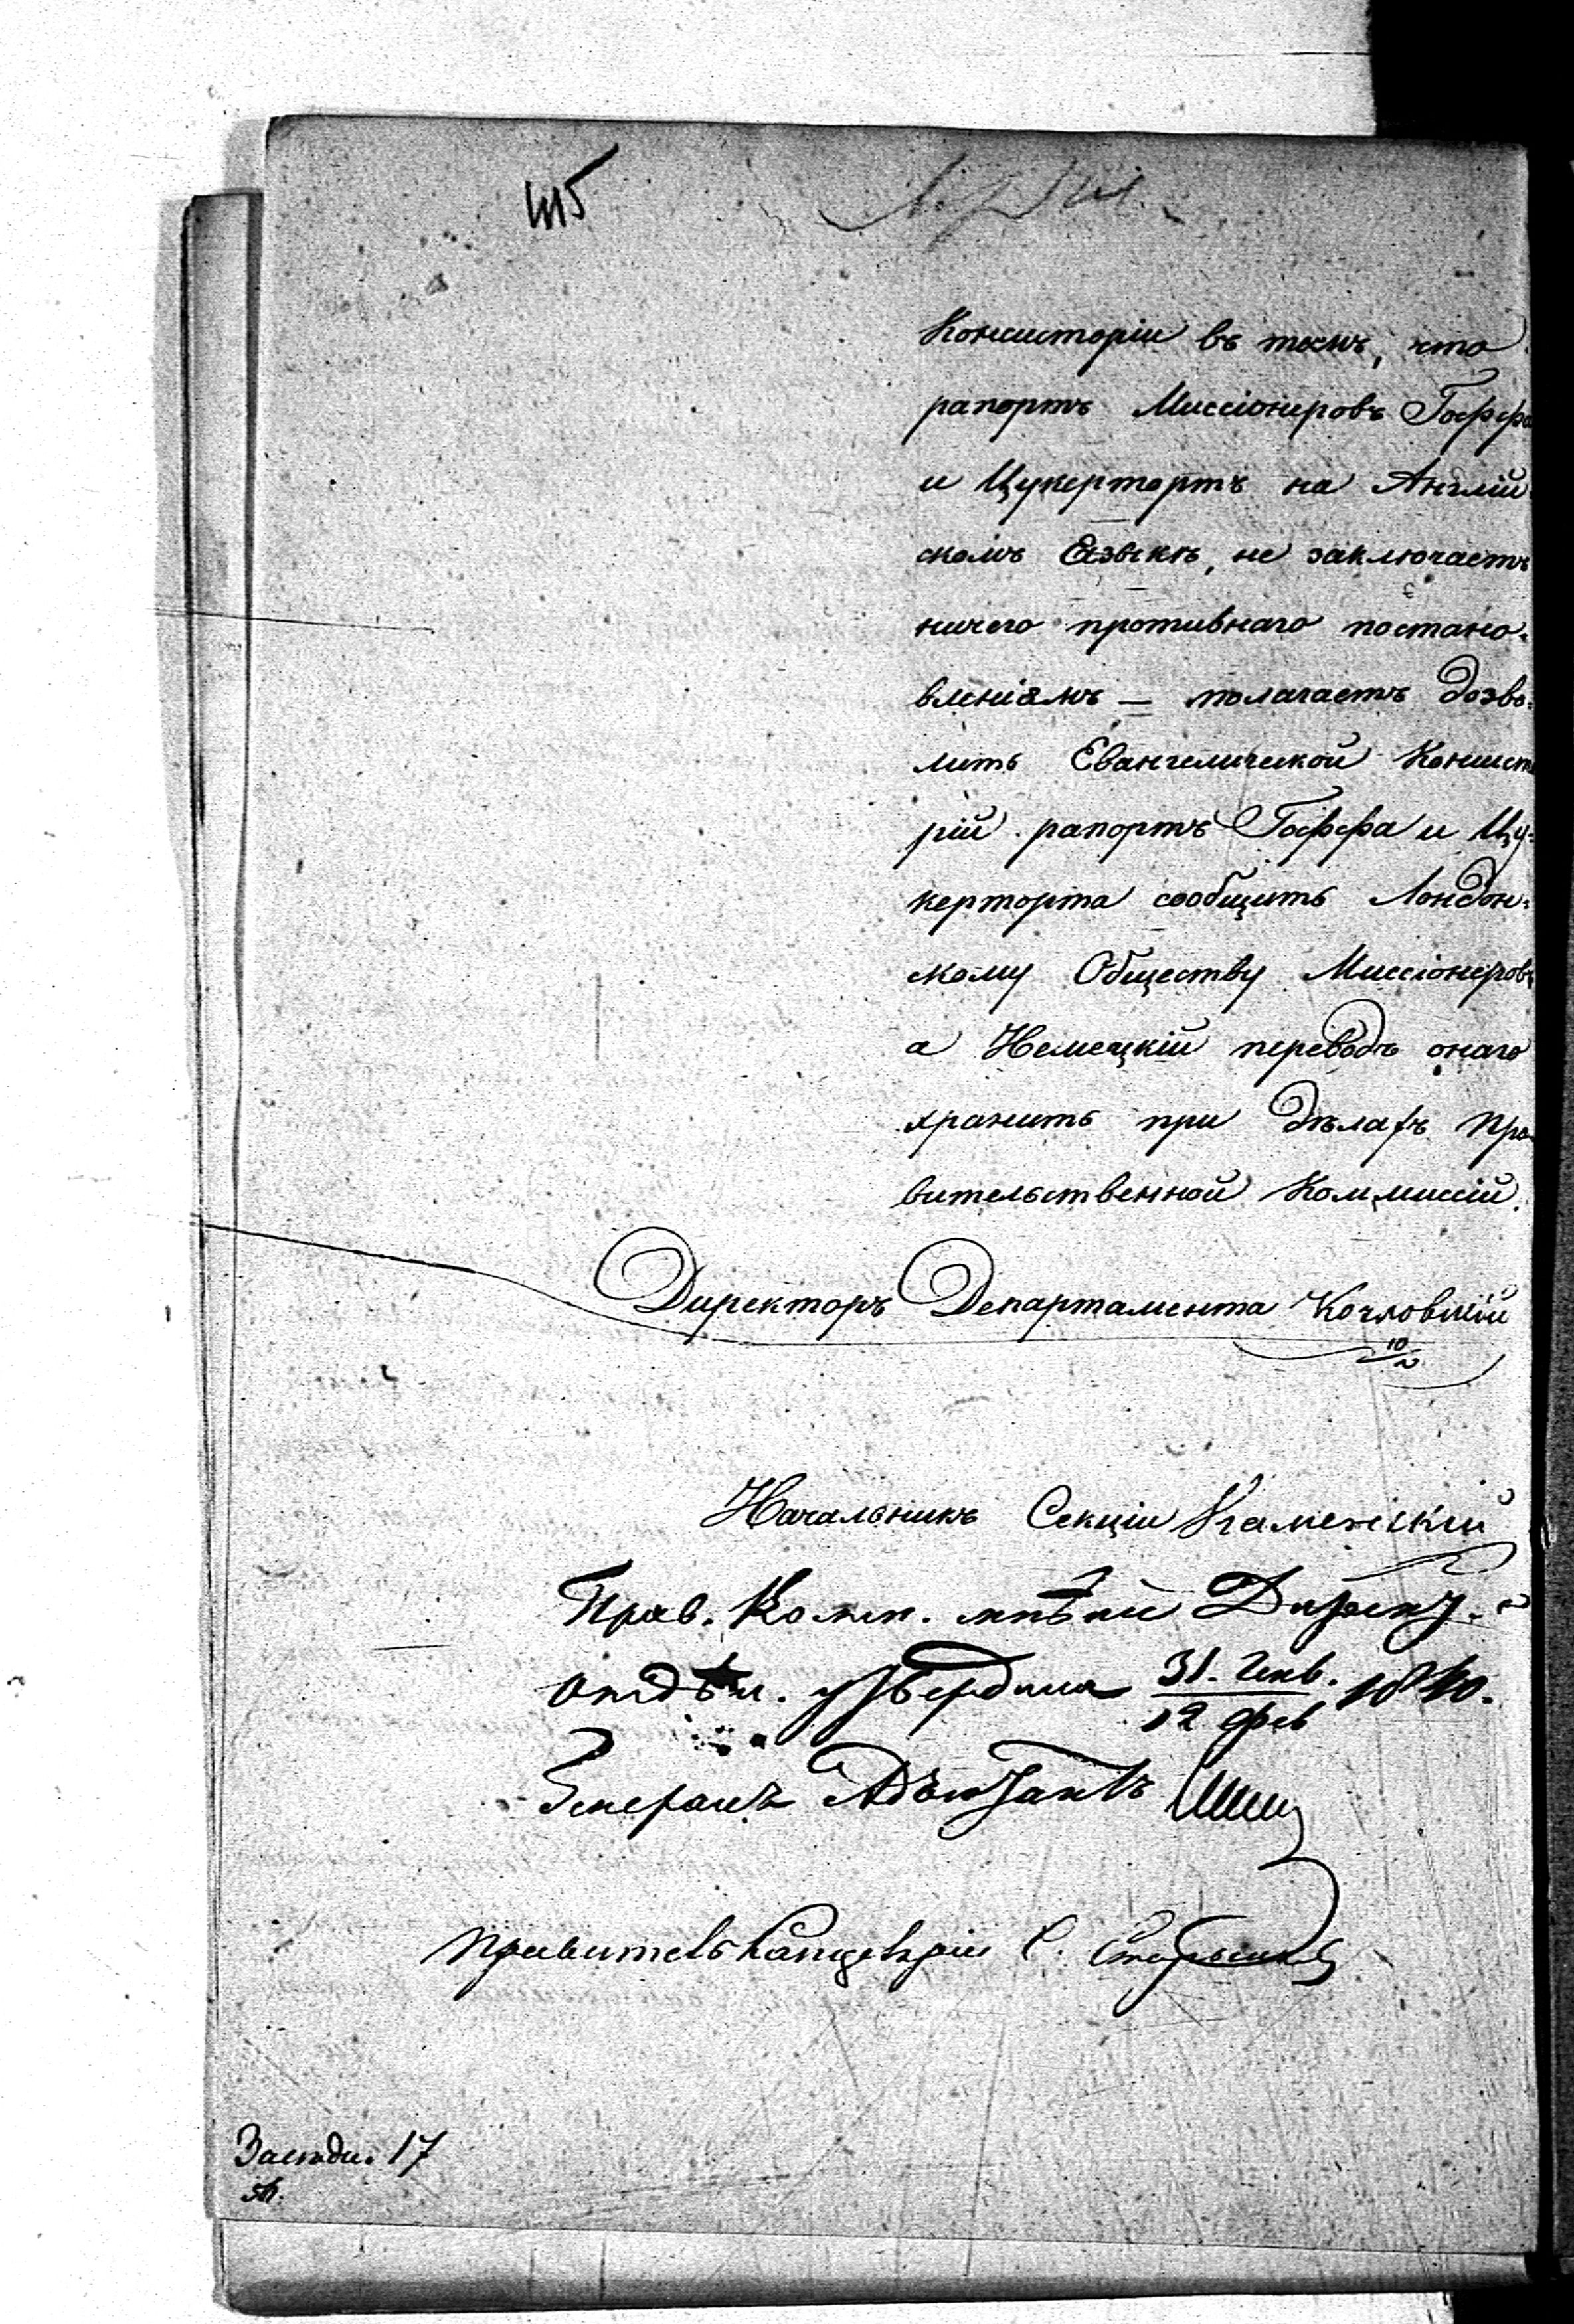 Консисторіи въ томъ, что
рапортъ Миссіонеровъ Гоффа
и Цукертортъ на Англій
скомъ Языкѣ, не заключаетъ
ничего противнаго постано-
вленіямъ — полагаетъ дозво-
лить Евангелической Консисто
рій рапортъ Гоффа и Цу-
керторта сообщить Лондон-
скому Обществу Миссіонеровъ
а Немецкій переводъ онаго
хранить при дѣлахъ Пра-
вительственной Коммиссій.
Директоръ Департамента
10/2
Начальникъ Секціи Каменскій
Прав. Комм. мнѣніе
отдѣл. утвердила 31. Янв. / 12 Фев 1840.
Генералъ Адъютантъ
Правитель Канцеляріи С.
Засѣд. 17